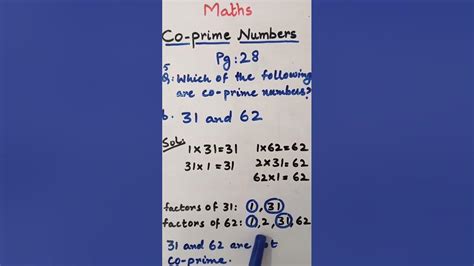 Maths
Co-prime Numbers
Pg:28
5
Q: Which of the following
are co-prime numbers?
b. 31 and 62
Sol:
1x31=31 1x62=62
31x1=31 2x31=62
62x1=62
factors of 31: 1, 31
factors of 62: 1, 2, 31, 62
31 and 62 are not
co-prime.